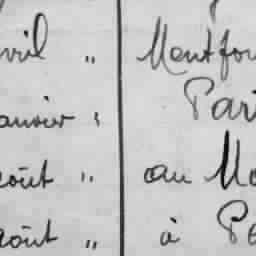 vril " Montfou
anvier " Pari
août " au Mo
août " à Pe